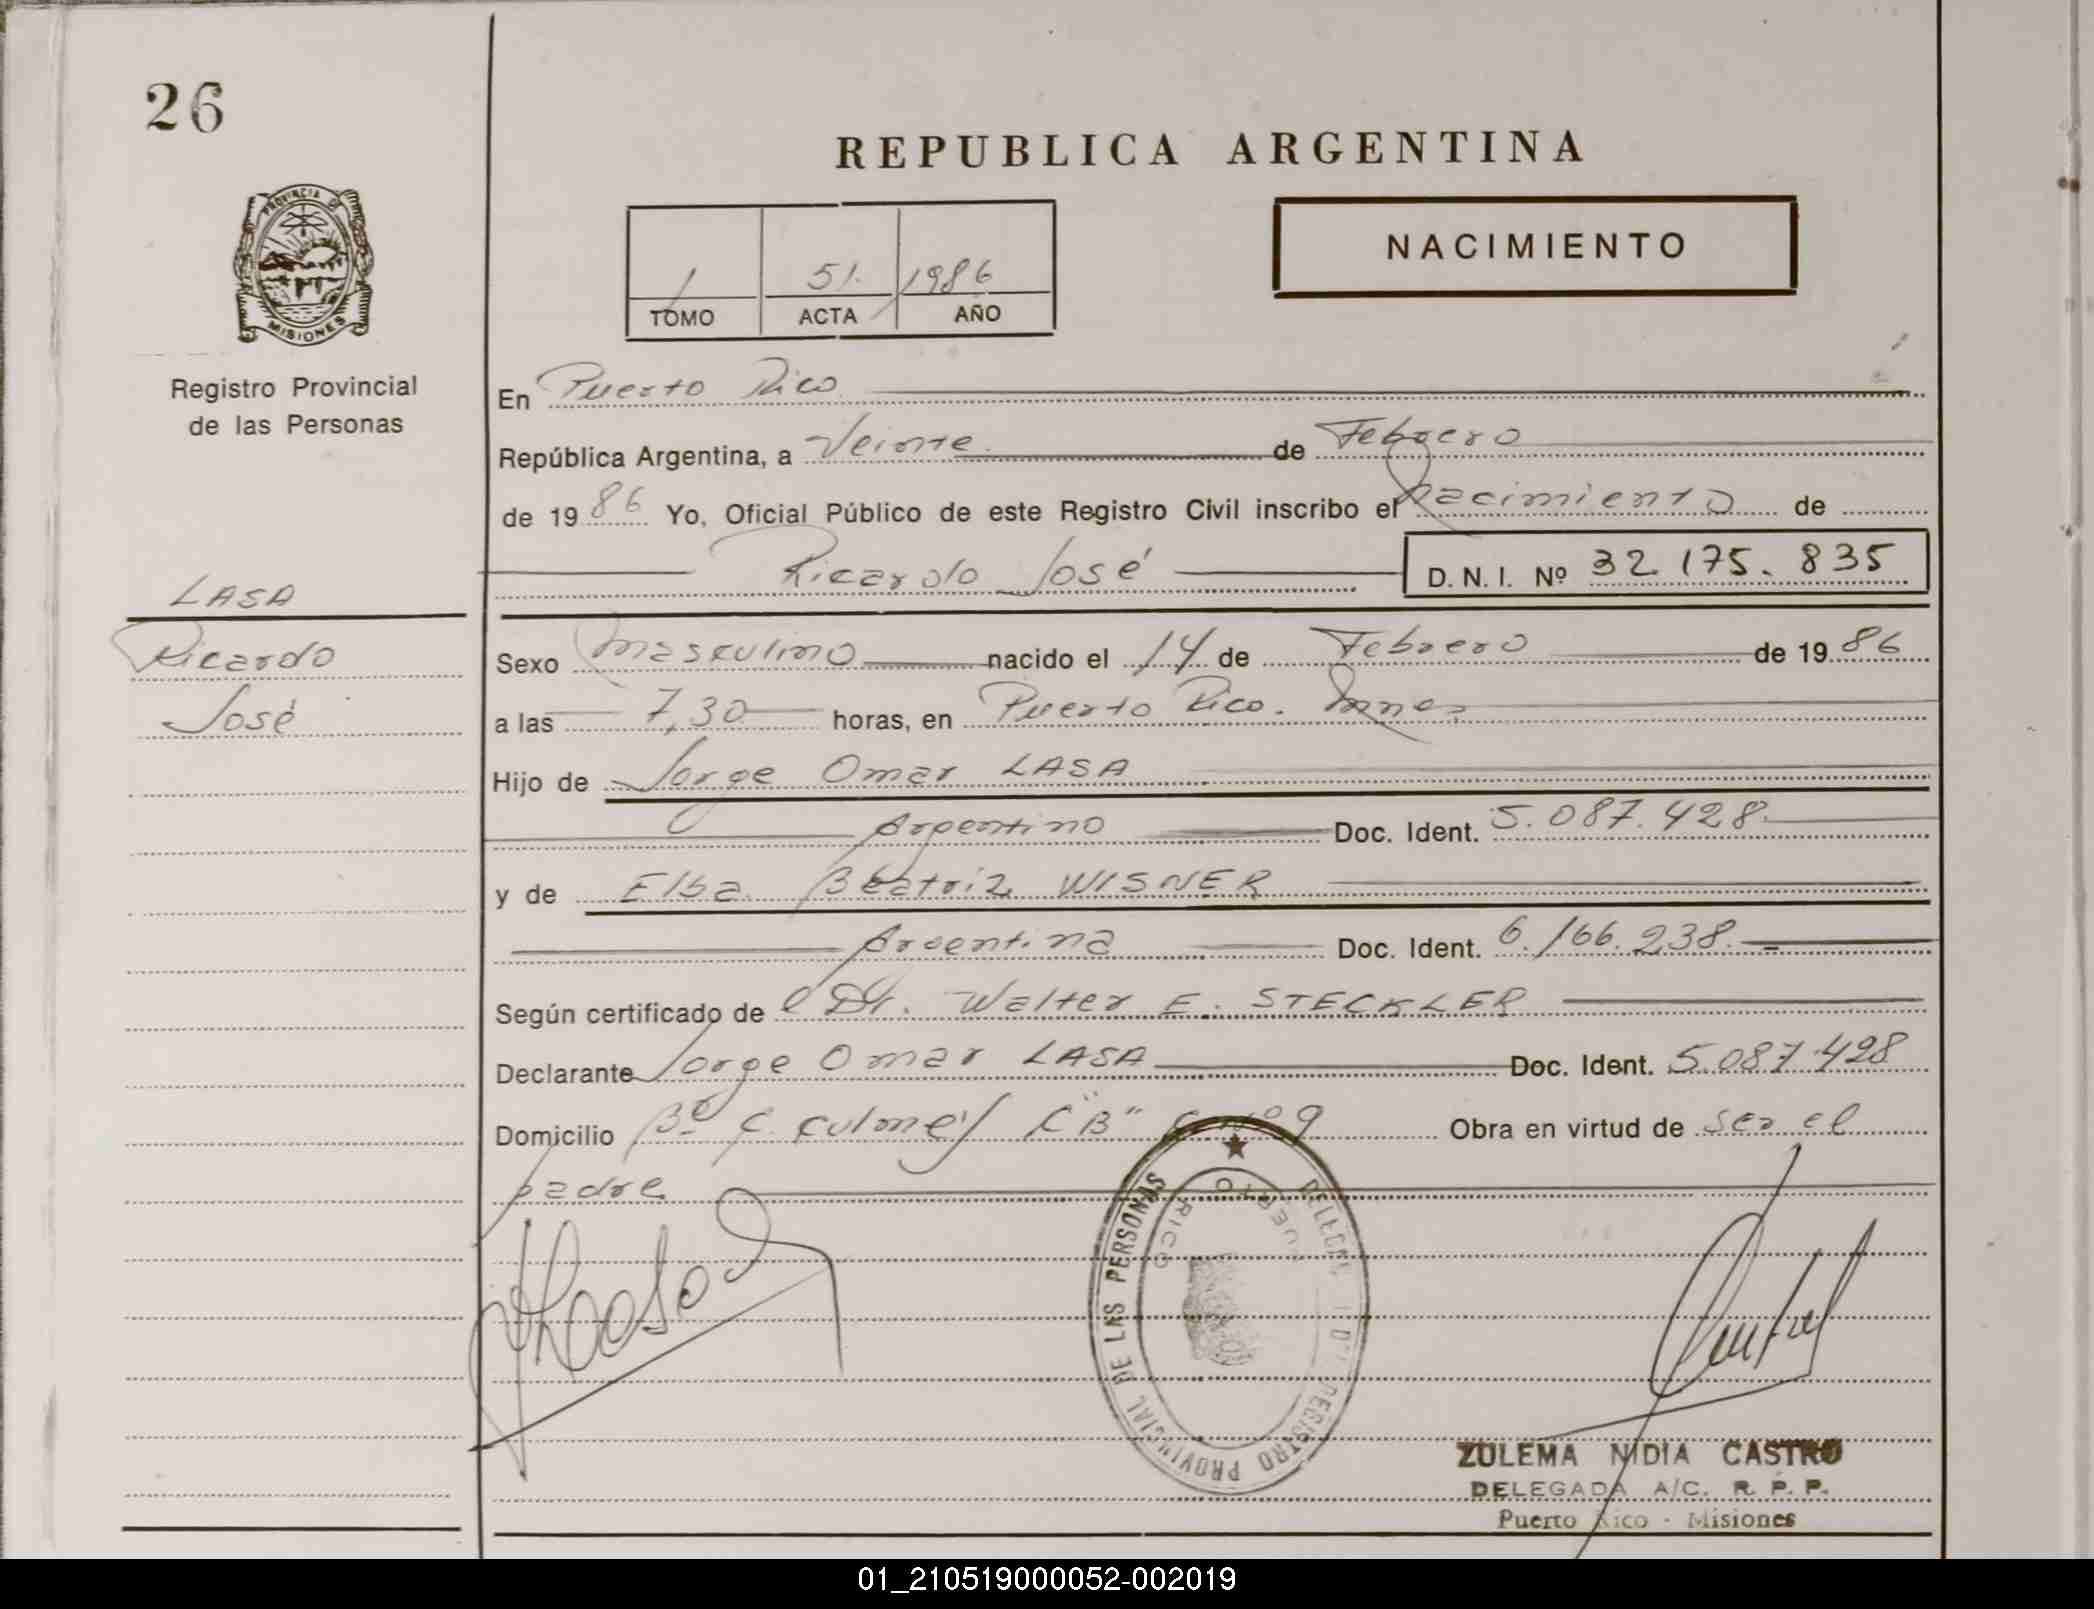 26
REPUBLICA ARGENTINA
PROVINCIA DE
MISIONES
Registro Provincial
de las Personas
1 51. 1986
TOMO ACTA AÑO
NACIMIENTO
En Puerto Rico
República Argentina, a Veinte de Febrero
de 1986 Yo, Oficial Público de este Registro Civil inscribo el nacimiento de
Ricardo José D.N.I. Nº 32.175.835
LASA
Ricardo
José
Sexo masculino nacido el 14 de Febrero de 1986
a las 7,30 horas, en Puerto Rico.
Hijo de Jorge Omar LASA
Argentino Doc. Ident. 5.087.428.
y de Elba Beatriz WISNER
Argentina Doc. Ident. 6.166.238.
Según certificado de Dr. Walter E. STECKLER
Declarante Jorge Omar LASA Doc. Ident. 5.087.428
Domicilio Bº C. "B" 9 Obra en virtud de ser el
padre
DELEGACION DEL REGISTRO PROVINCIAL DE LAS PERSONAS
PUERTO RICO
ZULEMA NIDIA CASTRO
DELEGADA A/C. R. P. P.
Puerto Rico - Misiones
01_210519000052-002019